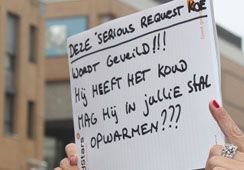 DEZE 'SERIOUS REQUEST KOE
WORDT GEVEILD!!!
HIJ HEEFT HET KOUD
MAG HIJ IN JALLIE STAL
OPWARMEN???